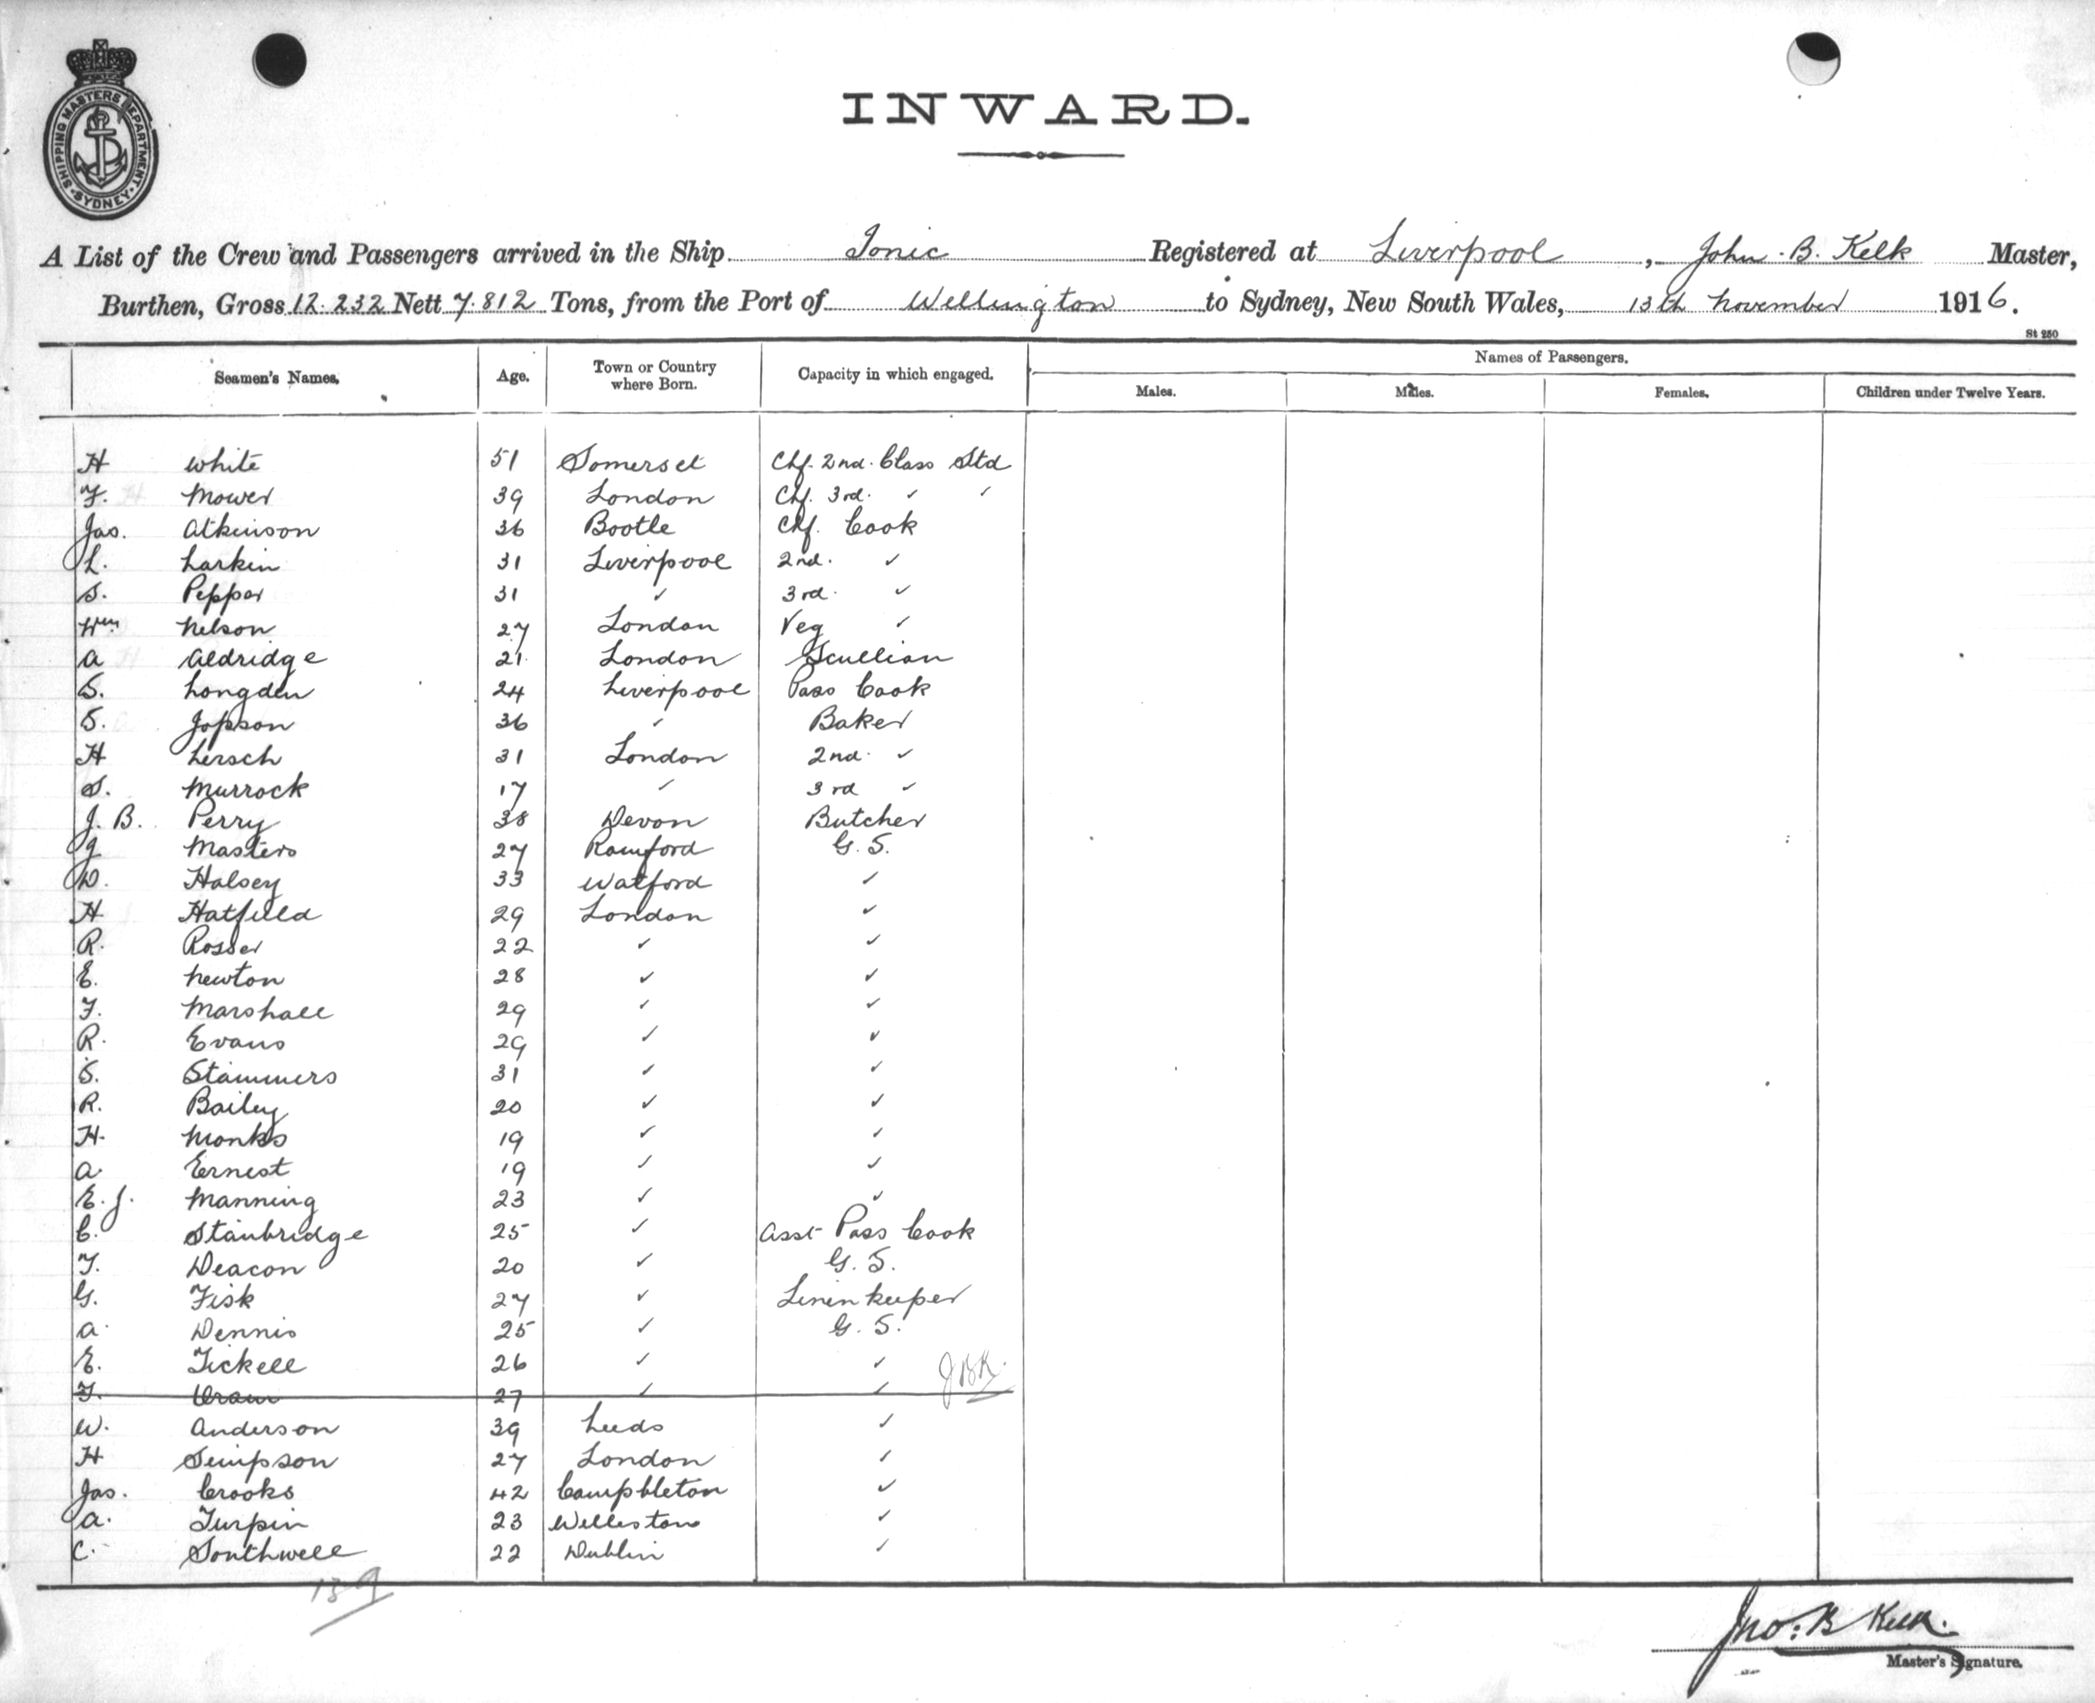 SHIPPING MASTERS DEPARTMENT
SYDNEY
INWARD.
A List of the Crew and Passengers arrived in the Ship Ionic Registered at Liverpool, John B. Kelk Master,
Burthen, Gross 12.232 Nett 7.812 Tons, from the Port of Wellington to Sydney, New South Wales, 13th November 1916.
St 250
Seamen's Names. Age. Town or Country where Born. Capacity in which engaged. Names of Passengers.
Males. Males. Females. Children under Twelve Years.
H White 51 Somerset Chf. 2nd. Class Std
F. Mower 39 London Chf. 3rd. ✓ ✓
Jas. Atkinson 36 Bootle Chf. Cook
L. Larkin 31 Liverpool 2nd. ✓
S. Pepper 31 ✓ 3rd. ✓
Wm Nelson 27 London Veg ✓
A Aldridge 21 London Scullion
S. Longden 24 Liverpool Pass Cook
S. Jopson 36 ✓ Baker
H Lersch 31 London 2nd. ✓
S. Murrock 17 ✓ 3rd ✓
J. B. Perry 38 Devon Butcher
G Masters 27 Romford G. S.
D. Halsey 33 Watford ✓
H Hatfield 29 London ✓
R. Rosser 22 ✓ ✓
E. Newton 28 ✓ ✓
F. Marshall 29 ✓ ✓
R. Evans 29 ✓ ✓
S. Stammers 31 ✓ ✓
R. Bailey 20 ✓ ✓
H. Monks 19 ✓ ✓
A Ernest 19 ✓ ✓
E. J. Manning 23 ✓ ✓
C. Stanbridge 25 ✓ Asst Pass Cook
F. Deacon 20 ✓ G. S.
G. Fisk 27 ✓ Linen keeper
A. Dennis 25 ✓ G. S.
E. Tickell 26 ✓ ✓ JBK.
F. 27 ✓ ✓
W. Anderson 39 Leeds ✓
H Simpson 27 London ✓
Jas. Crooks 42 Campbleton ✓
A. Turpin 23 Willeston ✓
C. Southwell 22 Dublin ✓
139
Jno: B Kelk.
Master's Signature.